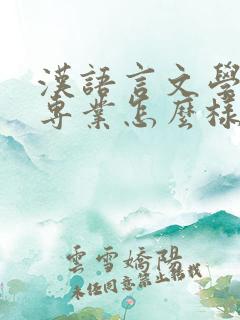 漢語言文學
專業怎麼樣
雲雪嬌陽
未經同意禁止轉載